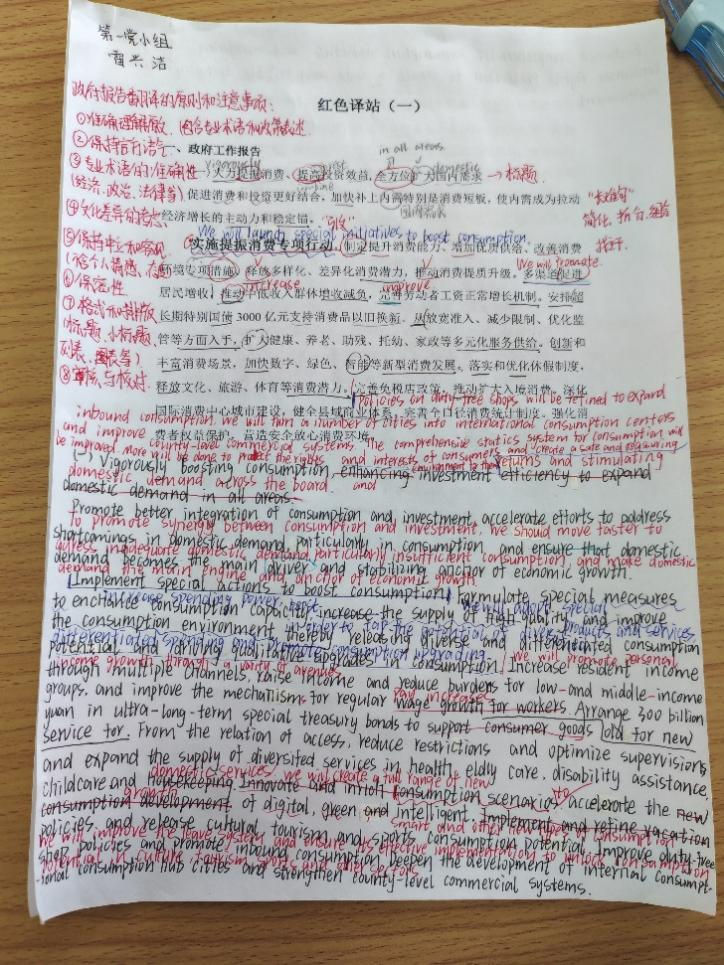 第一党小组
雷兴洁
政府报告翻译的原则和注意事项:
红色译站(一)
①准确理解原文,包含专业术语和政策表述.
②保持言行语气
一、政府工作报告
in all areas
③专业术语的准确性
(经济、政治、法律等)
vigorously
domestic
大力提振消费、提高投资效益,全方位扩大国内需求 → 标题.
促进消费和投资更好结合,加快补上内需特别是消费短板,使内需成为拉动
combine
④文化差异的考虑
经济增长的主动力和稳定锚。
国内需求
"长难句"
简化,拆分,整合
We will launch special initiatives to boost consumption.
⑤保持中立和客观
实施提振消费专项行动。制定提升消费能力、增加优质供给、改善消费
环境专项措施,释放多样化、差异化消费潜力,推动消费提质升级。多渠道促进
We will promote
⑥保密性
居民增收,推动中低收入群体增收减负,完善劳动者工资正常增长机制。安排超
increase
improve
⑦格式和排版
(标题、小标题、
列表、图表等)
长期特别国债3000亿元支持消费品以旧换新。从放宽准入、减少限制、优化监
管等方面入手,扩大健康、养老、助残、托幼、家政等多元化服务供给。创新和
丰富消费场景,加快数字、绿色、智能等新型消费发展。落实和优化休假制度,
⑧审核与校对.
释放文化、旅游、体育等消费潜力。完善免税店政策,推动扩大入境消费。深化
policies on duty-free shops will be refined to expand
国际消费中心城市建设,健全县域商业体系。完善全口径消费统计制度。强化消
inbound consumption. we will turn a number of cities into international consumption centers
费者权益保护,营造安全放心消费环境。
and improve county-level commercial systems. The comprehensive statics system for consumption will
be improved. more will be done to protect the rights and interests of consumers and create a safe and reassuring
environment
(一) Vigorously boosting consumption, enhancing investment efficiency to expand
returns and stimulating
domestic demand across the board.
and
domestic demand in all areas.
Promote better integration of consumption and investment, accelerate efforts to address
To promote synergy between consumption and investment, we should move faster to
shortcomings in domestic demand, particularly in consumption, and ensure that domestic
address inadequate domestic demand, particularly insufficient consumption, and make domestic
demand becomes the main driver and stabilizing anchor of economic growth.
demand the main engine and anchor of economic growth.
Implement special actions to boost consumption. Formulate special measures
increase spending power
we will adopt special
to enchance consumption capacity, increase the supply of high quality and improve
in order to tap the potential of diverse products and services
the consumption environment thereby releasing diverse and differentiated consumption
differentiated spending and promote consumption upgrading.
potential and driving qualitative upgrades in consumption. Increase resident income
we will promote personal
income growth through a variety of avenues
through multiple channels, raise income and reduce burdens for low-and middle-income
groups, and improve the mechanisms for regular wage growth for workers. Arrange 300 billion
pay increases
yuan in ultra-long-term special treasury bonds to support consumer goods old for new
service for. From the relation of access, reduce restrictions and optimize supervision
and expand the supply of diversifed services in health, eldly care, disability assistance,
domestic services. we will create a full range of new
childcare and housekeeping. Innovate and inrich consumption scenarios, to accelerate the new
growth
consumption development of digital, green and intelligent. Implement and refine vacation
smart and other new types of consumption
policies, and release cultural, tourism, and sports consumption potential. Improve duty-free
we will improve the leave system and ensure its effective implementation to unlock consumption
shop policies and promote inbound consumption. Deepen the development of internal consumpt-
potential in culture, tourism, sports and other sectors.
-ional consumption hub cities and strengthen county-level commercial systems.